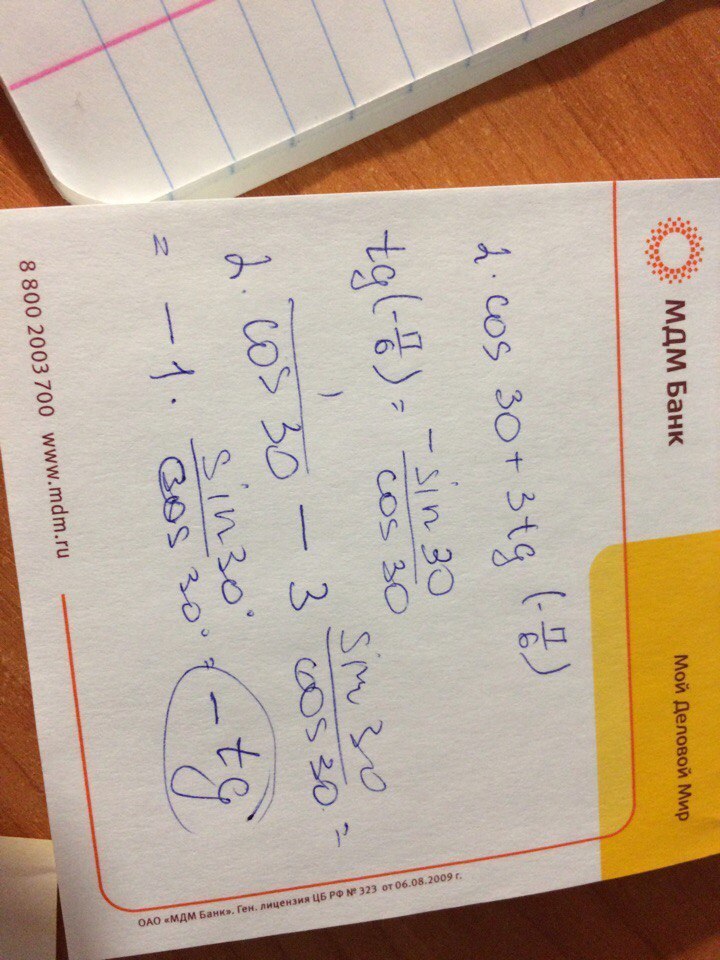 МДМ Банк
Мой Деловой Мир
2 · cos 30 + 3tg (-π/6)
tg(-π/6) = -sin 30/cos 30
2 · cos 30 - 3 sin 30/cos 30 =
= -1 · sin 30°/cos 30° = -tg
8 800 2003 700 www.mdm.ru
ОАО «МДМ Банк». Ген. лицензия ЦБ РФ № 323 от 06.08.2009 г.